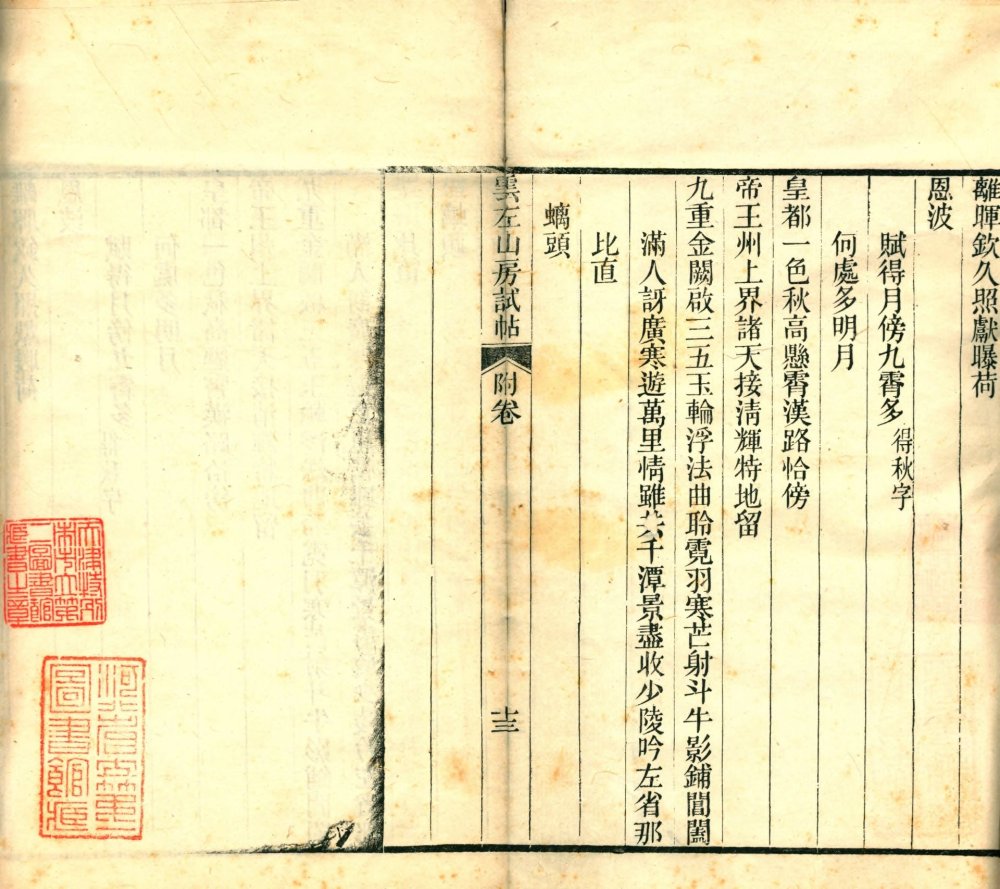 離暉欽久照獻曝荷
恩波
賦得月傍九霄多得秋字
何處多明月
皇都一色秋高懸霄漢路恰傍
帝王州上界諸天接淸輝特地留
九重金闕啟三五玉輪浮法曲聆霓羽寒芒射斗牛影鋪閶闔
滿人訝廣寒遊萬里情雖共千潭景盡收少陵吟左省那
比直
螭頭
雲左山房試帖
附卷
十三
天津特別
市市立第
二圖書館
藏書之章
河北省第
圖書館藏